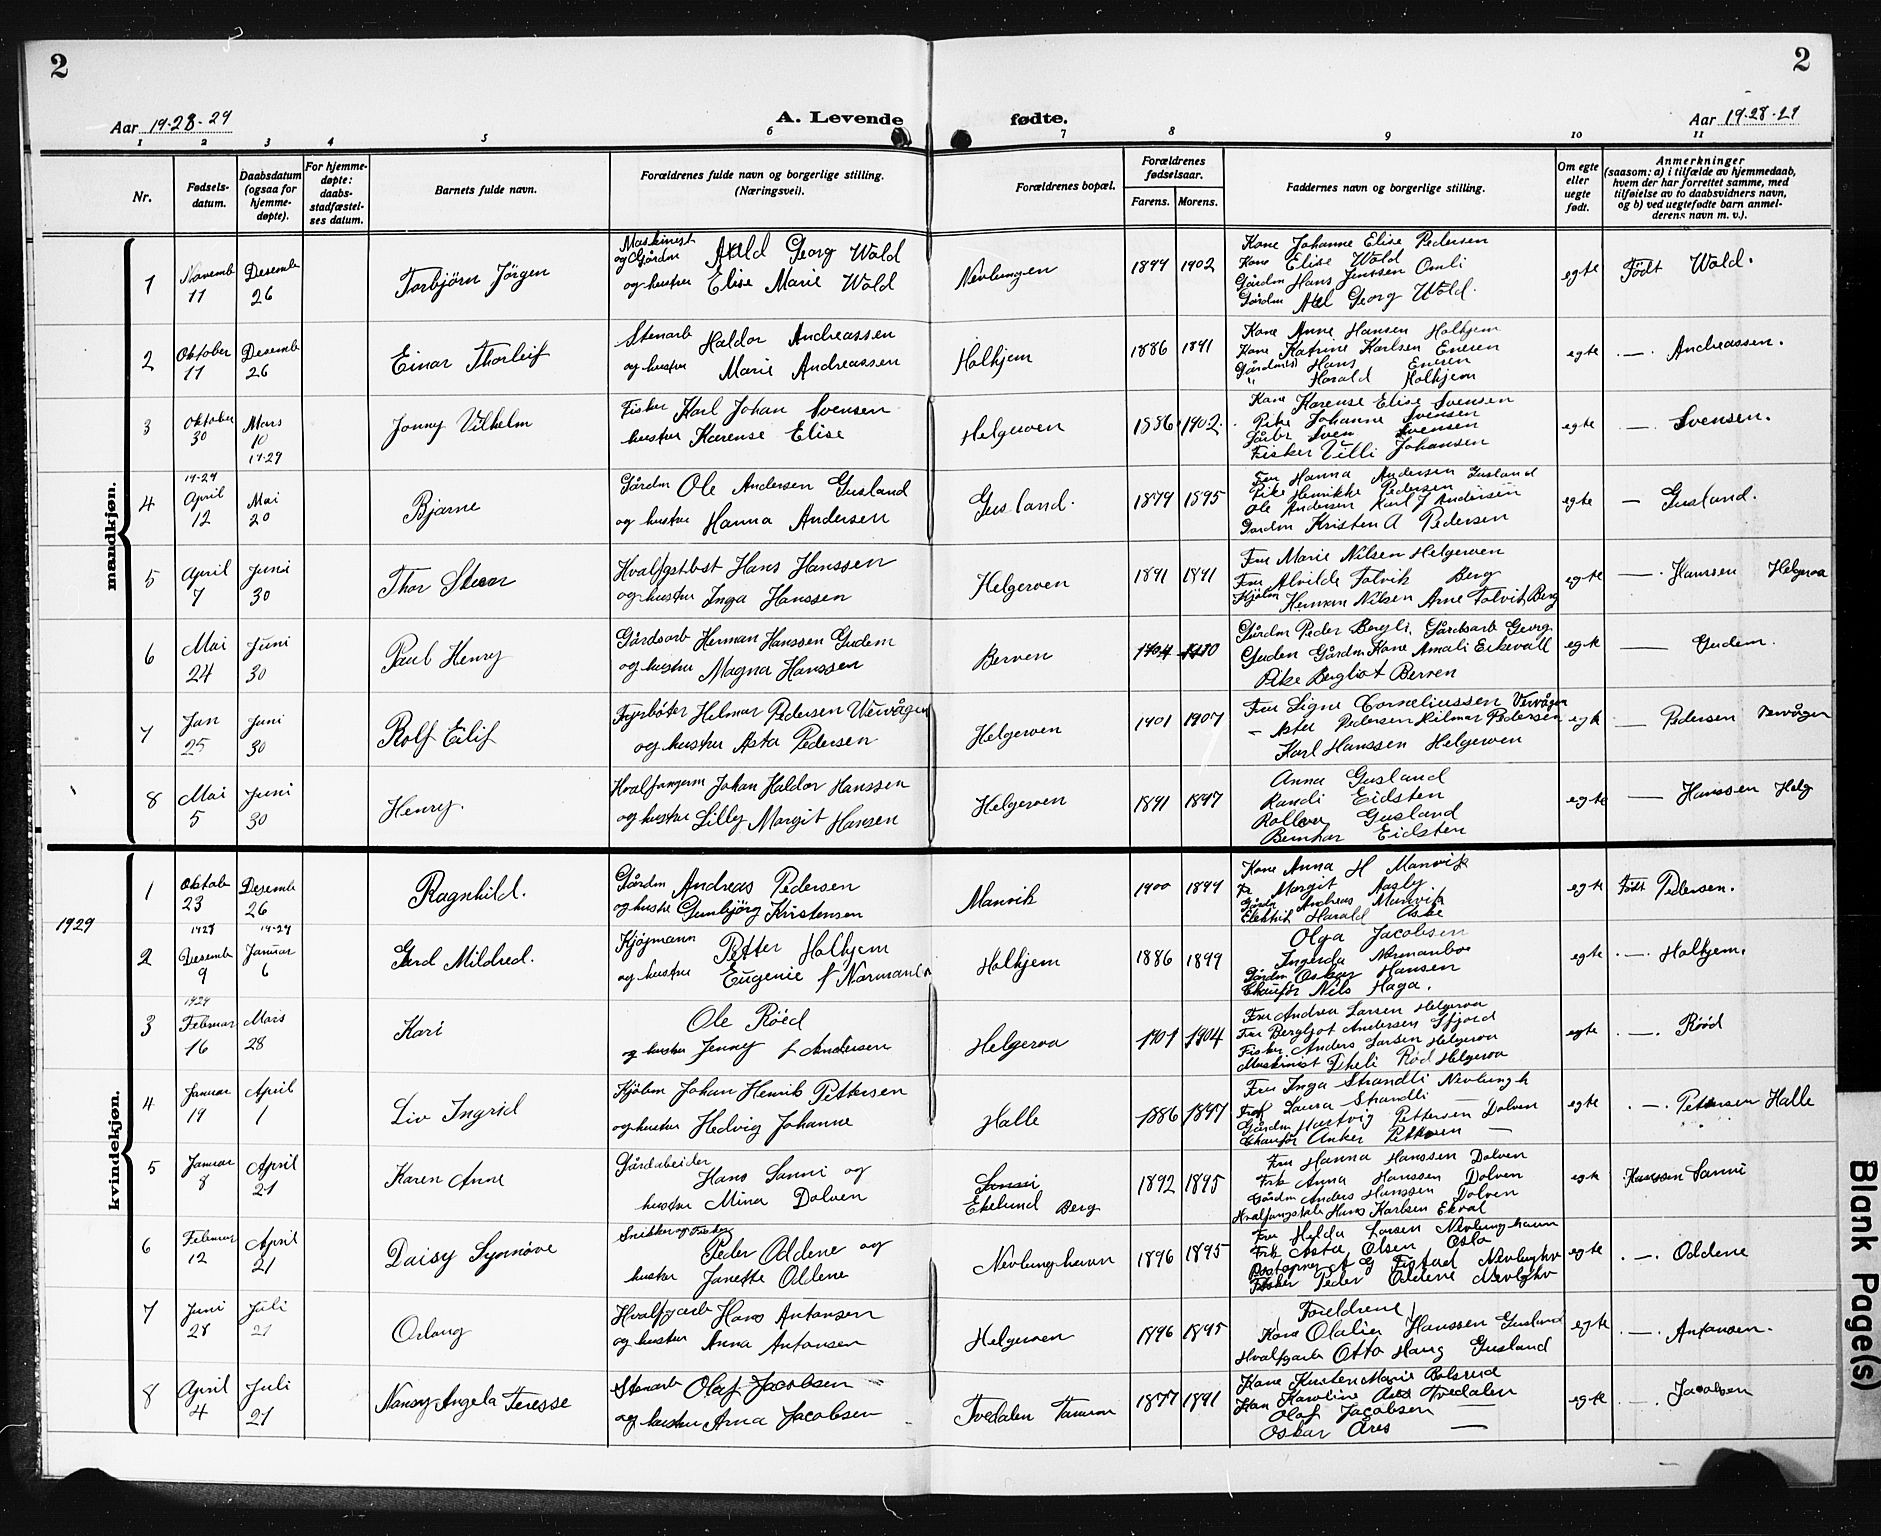 2
2
Aar 19.28-29
A. Levende
fødte.
Aar 19.28-29
1 2 3 4 5 6 7 8 9 10 11
Nr.
Fødsels-
datum.
Daabsdatum
(ogsaa for
hjemme-
døpte).
For hjemme-
døpte:
daabs-
stadfæstel-
ses datum.
Barnets fulde navn.
Forældrenes fulde navn og borgerlige stilling.
(Næringsvei).
Forældrenes bopæl.
Forældrenes
fødselsaar.
Farens. Morens.
Faddernes navn og borgerlige stilling.
Om egte
eller
uegte
født.
Anmerkninger
(saasom: a) i tilfælde av hjemmedaab,
hvem der har forrettet samme, med
tilføielse av to daabsvidners navn,
og b) ved uegtefødte barn anmel-
derens navn m. v.).
mandkjøn.
1
Novemb
11
Desemb
26
Torbjörn Jörgen
Maskinist
og Gårdm Axel Georg Wold
og hustru Elise Marie Wold
Nevlungen
1899 1902
Kone Johanne Elise Pedersen
Kone Elise Wold
Gårdm Hans Jenssen Omli
Gårdm Axel Georg Wold.
egte
Født Wold.
2
Oktober
11
Desemb
26
Einar Thorleif
Stenarb Haldor Andreassen
og hustru Marie Andreassen
Holkjem
1886 1891
Kone Anne Hansen Holkjem
Kone Katrine Karlsen Enesen
Gårdmen Hans Enesen
" Harald Holkjem
egte
. — . Andreassen.
3
Oktober
30
Mars
10
19-29
Jonny Vilhelm
Fisker Karl Johan Svensen
hustru Karense Elise
Helgeroen
1886 1902.
Kone Karense Elise Svensen
Pike Johanne Svensen
Gårbr Sven Svensen
Fisker Villi Johansen
egte
. — . Svensen.
4
19-29
April
12
Mai
20
Bjarne
Gårdm Ole Andersen Gusland
og hustru Hanna Andersen
Gusland.
1879 1895
Fru Hanna Andersen Gusland
Pike Henrikke Pedersen
Ole Andersen Karl J Andersen
Gardm Kristen A Pedersen
egte
— Gusland.
5
April
7
Juni
30
Thor Steen
Hvalfgstbst Hans Hanssen
og hustru Inga Hanssen
Helgeroen
1891 1891
Fru Marie Nilsen Helgeroen
Fru Alvilde Tolvik Berg
Herman Nilsen Arne Tolvik Berg
egte
— . Hanssen Helgeroa
6
Mai
24
Juni
30
Paul Henry
Gårdsarb Herman Hanssen Gudem
og hustru Magna Hanssen
Berven
1904 1910
Gårdm Peder Bergli. Gårdsarb Georg
Guden Gårdm Kone Amali Eikevall
Pike Bergliot Berven
egte
— Gudem.
7
Jan
25
Juni
30
Rolf Eilif
Fyrbøter Helmar Pedersen Vevvågen
og hustru Asta Pedersen
Helgeroen
1901 1907
Fru Signe Corneliussen Vevvågen
— Asta Pedersen Hilmar Pedersen
Karl Hanssen Helgeroen
egte
— . Pedersen Vevvågen
8
Mai
5
Juni
30
Henry.
Hvalfangerm Johan Haldor Hanssen
og hustru Lilly Margit Hansen
Helgeroen
1891 1897
Anna Gusland
Randi Eidsten
Gusland
Bernhar Eidsten
egte
— Hanssen Helg
kvindekjøn.
1
Oktob
23
Desemb
26
Ragnhild.
Gårdm Andreas Pedersen
og hustru Gunbjörg Kristensen
Manvik
1900 1899
Kone Anna H Manvik
Fr Margit Aasly
Gårdm Andreas Manvik
Elektrik Harald Aske
egte
Født Pedersen.
1929
2
1928
Desemb
9
19-29
Januar
6
Gerd Mildred.
Kjøpmann Petter Holkjem
og hustru Eugenie f Normanbo
Holkjem
1886 1899
Olga Jacobsen
Ingerda Normanboe
Gårdm Oskar Hansen
Chaufør Nils Haga.
egte
. — . Holkjem.
3
1929
Februar
16
Mars
28
Kari
Ole Röed
og hustru Jenny f Andersen
Helgeroa
1901 1904
Fru Andrea Larsen Helgeroa
Fru Bergljot Andersen
Fisker Anders Larsen Helgeroa
Maskinist Röd Helgeroa
egte
. — . Röod
4
Januar
19
April
1
Liv Ingrid
Kjölem Johan Henrik Pettersen
og hustru Hedvig Johanne
Halle
1886 1897
Fru Inga Strandli Nevlungh
Laura Strandli —
Gårdm Hartvig Pettersen Dolven
Chaufør Anker Pettersen —
egte
. — . Pettersen Halle
5
Januar
8
April
21
Karen Anne
Gårdabeider
Hans Sanni og
hustru Mina Dolven
Sanni
Ekelund Berg
1892 1895
Fru Hanna Hanssen Dolven
Frk Anna Hanssen Dolven
Gårdm Anders Hanssen Dolven
Hans Karlsen Ekval
egte
Hanssen Sanni
6
Februar
12
April
21
Daisy Synnöve
Snikker og Fisker
Peder Oddene og
hustru Janette Oddene
Nevlunghavn
1896 1895
Fru Helda Larsen Nevlunghavn
Frk Asta Olsen Oslo
A G Fistad Nevlunghv
Fisker Peder Oddene Nevlghv
egte
. — . Oddene
7
Juni
28
Juli
21
Orlaug
Hvalfgarb Hans Antonsen
og hustru Anna Antonsen
Helgeroen
1896 1895
Foreldrene
Kone Olalia Hanssen Gusland
Hvalfgarb Otto Haug Gusland
egte
. — . Antonsen.
8
April
4
Juli
21
Nansy Angela Teresse
Stenarb Olaf Jacobsen
og hustru Anna Jacobsen
Tvedalen Tanum
1877 1891
Kone Kirsten Marie Bolsrud
Karoline Ares Tvedalen
Olaf Jacobsen —
Oskar Ares —
egte
. — . Jacobsen
Blank Page(s)